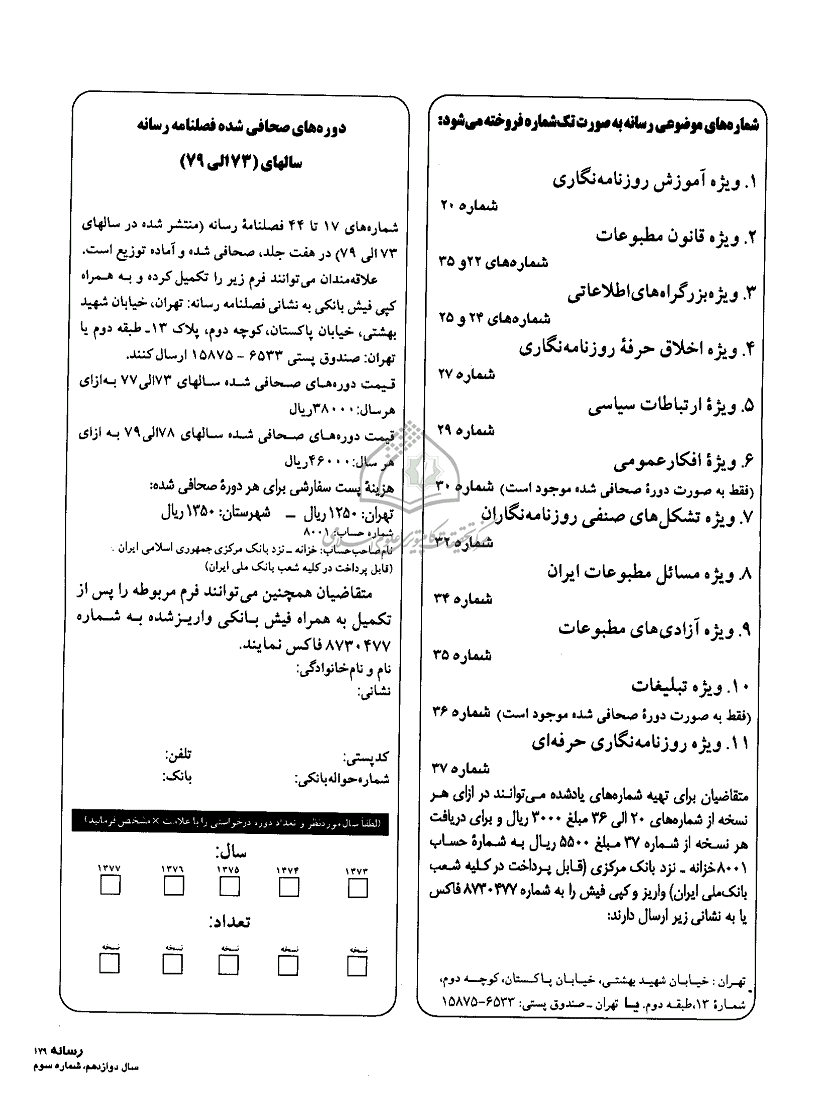 شماره‌های موضوعی رسانه به صورت تک‌شماره فروخته می‌شود:
۱. ویژه آموزش روزنامه‌نگاری
شماره ۲۰
۲. ویژه قانون مطبوعات
شماره‌های ۲۲و ۳۵
۳. ویژه‌بزرگراه‌های‌اطلاعاتی
شماره‌های ۲۴ و ۲۵
۴. ویژه اخلاق حرفهٔ روزنامه‌نگاری
شماره ۲۷
۵. ویژهٔ ارتباطات سیاسی
شماره ۲۹
۶. ویژهٔ افکارعمومی
(فقط به صورت دورهٔ صحافی شده موجود است) شماره ۳۰
۷. ویژه تشکل‌های صنفی روزنامه‌نگاران
شماره ۳۲
۸. ویژه مسائل مطبوعات ایران
شماره ۳۴
۹. ویژه آزادی‌های مطبوعات
شماره ۳۵
۱۰. ویژه تبلیغات
(فقط به صورت دورهٔ صحافی شده موجود است) شماره ۳۶
۱۱. ویژه روزنامه‌نگاری حرفه‌ای
شماره ۳۷
متقاضیان برای تهیه شماره‌های یادشده می‌توانند در ازای هر
نسخه از شماره‌های ۲۰ الی ۳۶ مبلغ ۳۰۰۰ ریال و برای دریافت
هر نسخه از شماره ۳۷ مبلغ ۵۵۰۰ ریال به شمارهٔ حساب
۸۰۰۱خزانه ـ نزد بانک مرکزی (قابل پرداخت در کلیه شعب
بانک‌ملی ایران) واریز و کپی فیش را به شماره ۸۷۳۰۴۷۷ فاکس
یا به نشانی زیر ارسال دارند:
تهران : خیابان شهید بهشتی، خیابان پاکستان، کوچه دوم،
شمارهٔ ۱۳،طبقه دوم. یا تهران ـ صندوق پستی: ۶۵۳۳-۱۵۸۷۵
دوره‌های صحافی شده فصلنامه رسانه
سالهای (۷۳الی ۷۹)
شماره‌های ۱۷ تا ۴۴ فصلنامهٔ رسانه (منتشر شده در سالهای
۷۳ الی ۷۹) در هفت جلد، صحافی شده و آماده توزیع است.
علاقه‌مندان می‌توانند فرم زیر را تکمیل کرده و به همراه
کپی فیش بانکی به نشانی فصلنامه رسانه: تهران، خیابان شهید
بهشتی، خیابان پاکستان،کوچه دوم، پلاک ۱۳ـ طبقه دوم یا
تهران: صندوق پستی ۶۵۳۳ - ۱۵۸۷۵ ارسال‌کنند.
قیمت دوره‌های صحافی شده سالهای ۷۳الی۷۷ به‌ازای
هرسال:۳۸۰۰۰ریال
قیمت دوره‌های صحافی شده سالهای ۷۸الی۷۹ به ازای
هر سال:۴۶۰۰۰ریال
هزینهٔ پست سفارشی برای هر دورهٔ صحافی شده:
تهران: ۱۲۵۰ ریال ـ شهرستان: ۱۳۵۰ ریال
شماره حساب: ۸۰۰۱
نام‌صاحب‌حساب: خزانه ـ نزد بانک مرکزی جمهوری اسلامی ایران .
(قابل پرداخت در کلیه شعب بانک ملی ایران)
متقاضیان همچنین می‌توانند فرم مربوطه را پس از
تکمیل به همراه فیش بانکی واریزشده به شماره
۸۷۳۰۴۷۷ فاکس نمایند.
نام و نام‌خانوادگی:
نشانی:
کدپستی: تلفن:
شماره‌حواله‌بانکی: بانک:
(لطفاً سال موردنظر و تعداد دوره درخواستی را با علامت × مشخص فرمایید)
سال:
۱۳۷۳ ۱۳۷۴ ۱۳۷۵ ۱۳۷۶ ۱۳۷۷
تعداد:
نسخه نسخه نسخه نسخه نسخه
رسانه ۱۷۹
سال دوازدهم، شماره سوم